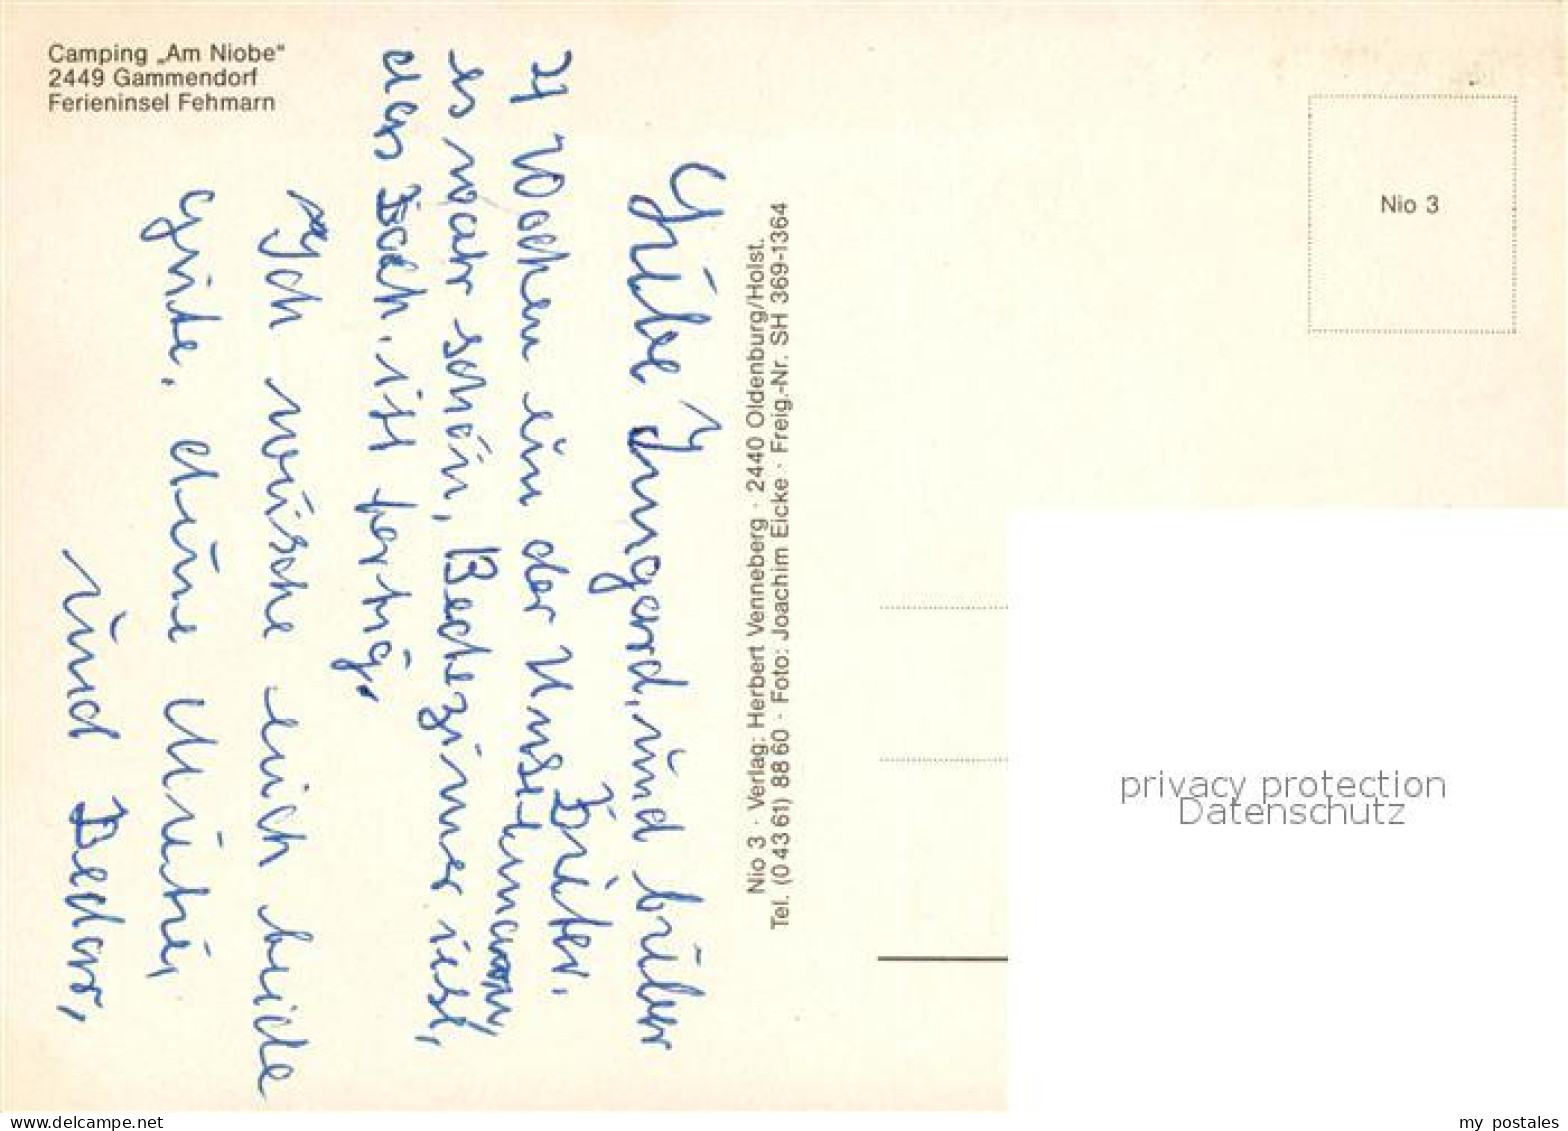 Camping „Am Niobe"
2449 Gammendorf
Ferieninsel Fehmarn
Liebe Irmgard, und lieber
Dieter.
4 Wochen in der
es war schön, Badezimmer ist,
das Dach, ist fertig.
Ich wünsche euch beide
Gute. deine
und
Nio 3 · Verlag: Herbert Venneberg · 2440 Oldenburg/Holst.
Tel. (0 43 61) 88 60 · Foto: Joachim Eicke · Freig.-Nr. SH 369-1364
Nio 3
privacy protection
Datenschutz
my postales
www.delcampe.net